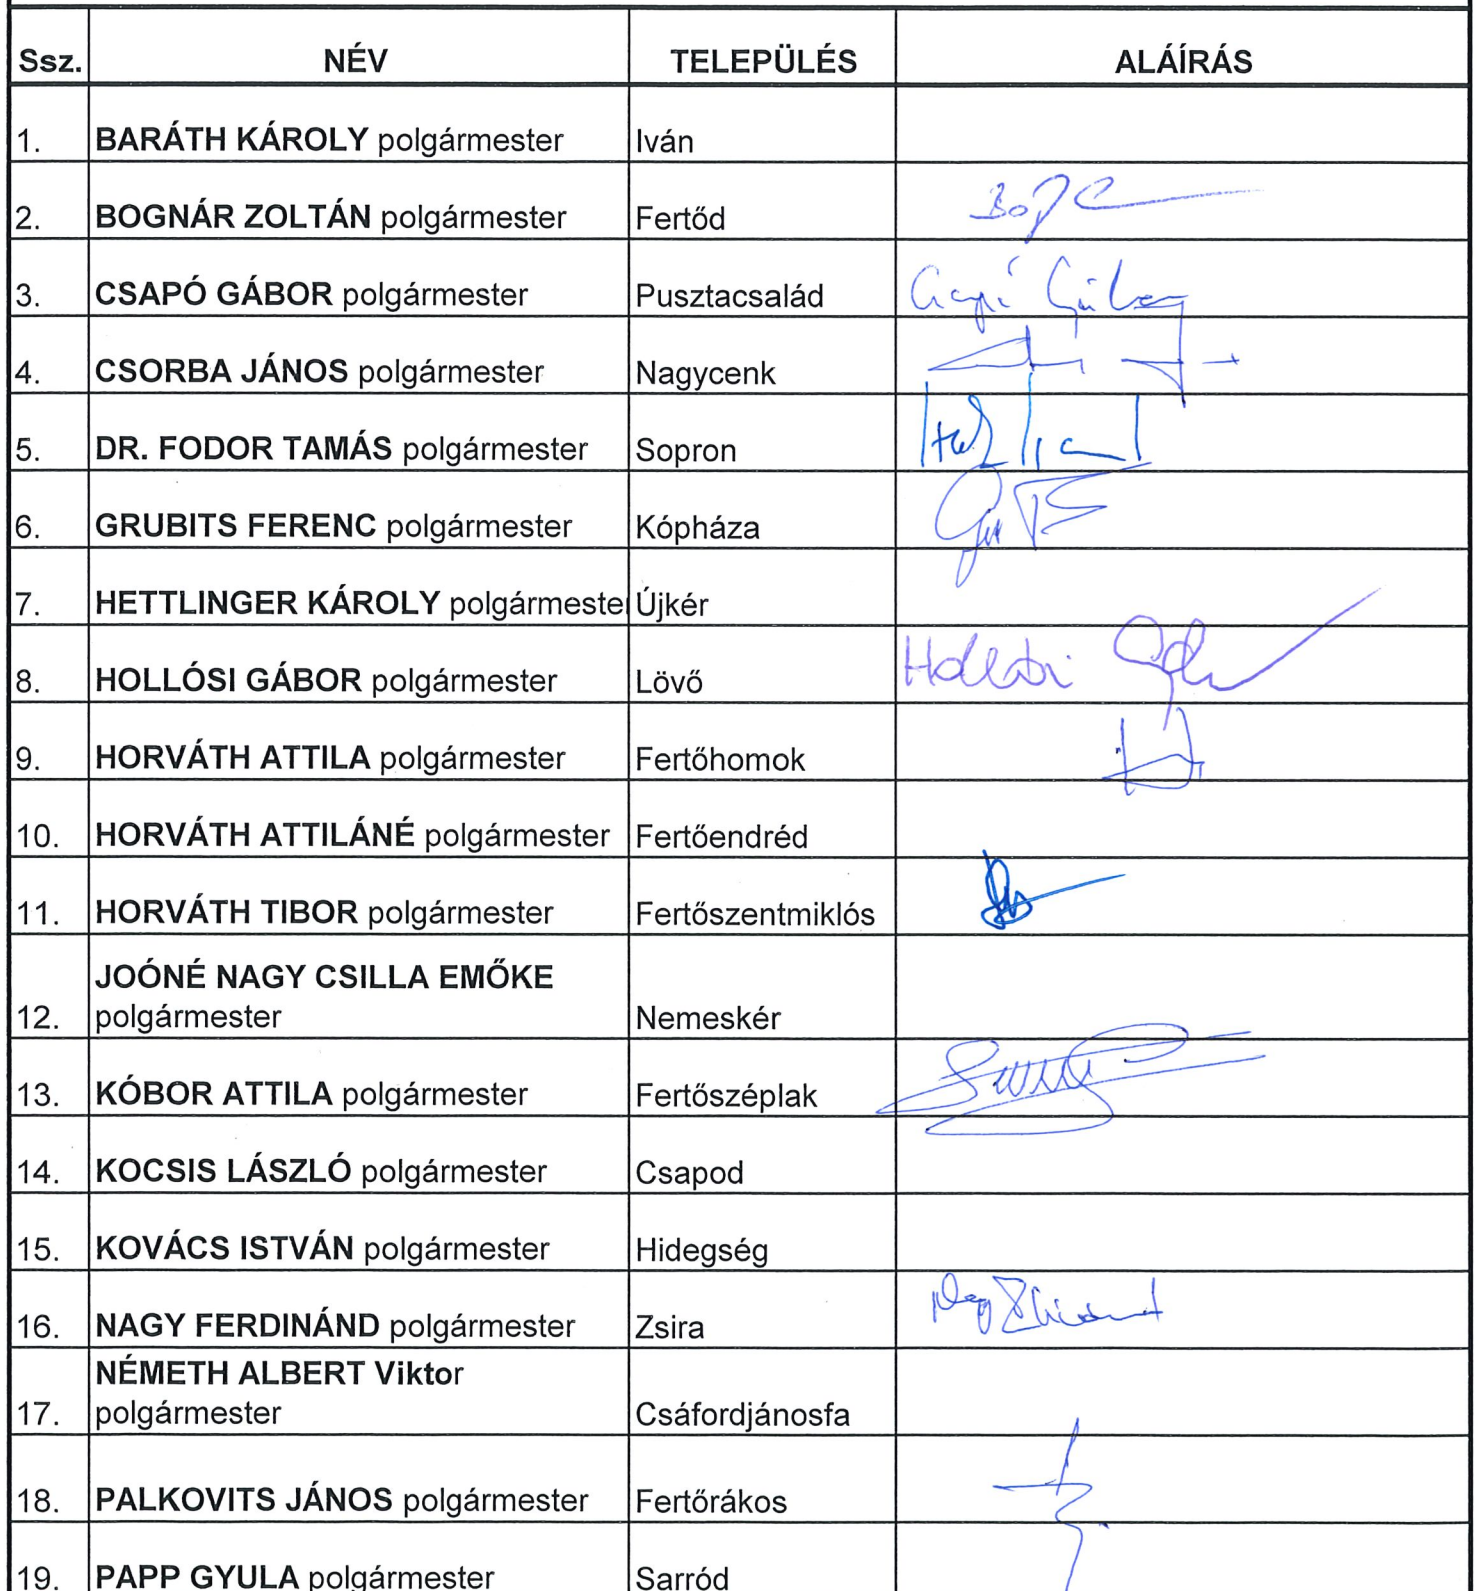 Ssz. NÉV TELEPÜLÉS ALÁÍRÁS
1. BARÁTH KÁROLY polgármester Iván
2. BOGNÁR ZOLTÁN polgármester Fertőd
3. CSAPÓ GÁBOR polgármester Pusztacsalád Csapó Gábor
4. CSORBA JÁNOS polgármester Nagycenk
5. DR. FODOR TAMÁS polgármester Sopron
6. GRUBITS FERENC polgármester Kópháza
7. HETTLINGER KÁROLY polgármester Újkér
8. HOLLÓSI GÁBOR polgármester Lövő Hollósi
9. HORVÁTH ATTILA polgármester Fertőhomok
10. HORVÁTH ATTILÁNÉ polgármester Fertőendréd
11. HORVÁTH TIBOR polgármester Fertőszentmiklós
JOÓNÉ NAGY CSILLA EMŐKE
12. polgármester Nemeskér
13. KÓBOR ATTILA polgármester Fertőszéplak
14. KOCSIS LÁSZLÓ polgármester Csapod
15. KOVÁCS ISTVÁN polgármester Hidegség
16. NAGY FERDINÁND polgármester Zsira Nagy
NÉMETH ALBERT Viktor
17. polgármester Csáfordjánosfa
18. PALKOVITS JÁNOS polgármester Fertőrákos
19. PAPP GYULA polgármester Sarród